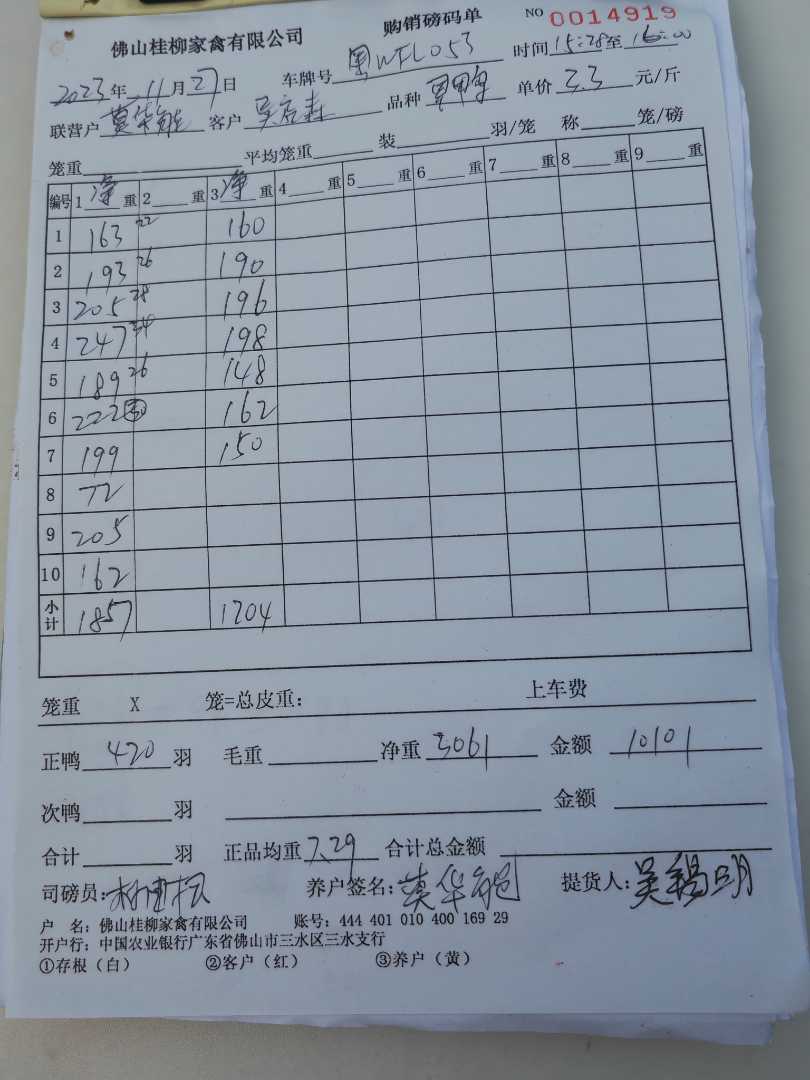 佛山桂柳家禽有限公司 购销磅码单 NO 0014919
2023年 11月27日 车牌号 粤WFL053 时间15:28至16:00
联营户 莫华能 客户 吴 品种 单价 3.3 元/斤
笼重 平均笼重 装 羽/笼 称 笼/磅
编号 1净重 2 重 3净重 4 重 5 重 6 重 7 重 8 重 9 重
1 163 22 160
2 193 26 190
3 205 28 196
4 247 34 198
5 189 26 148
6 222 30 162
7 199 150
8 72
9 205
10 162
小计 1857 1204
笼重 X 笼=总皮重： 上车费
正鸭 420 羽 毛重 净重 3061 金额 10101
次鸭 羽 金额
合计 羽 正品均重 7.29 合计总金额
司磅员: 养户签名: 莫华能 提货人: 吴锡明
户 名: 佛山桂柳家禽有限公司 账号: 444 401 010 400 169 29
开户行: 中国农业银行广东省佛山市三水区三水支行
①存根（白） ②客户（红） ③养户（黄）